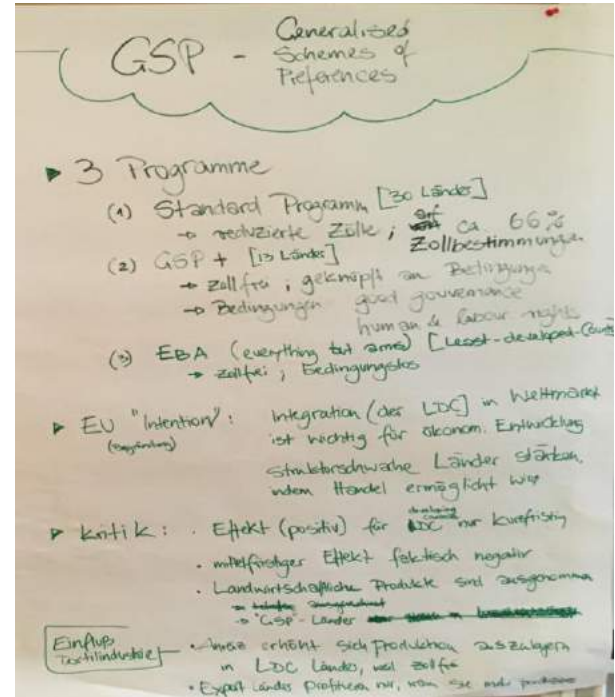 GSP - Generalised
Schemes of
Preferences
▶ 3 Programme
(1) Standard Programm [30 Länder]
→ reduzierte Zölle; auf ca. 66%
Zollbestimmungen
(2) GSP + [13 Länder]
→ Zollfrei; geknüpft an Bedingungen
→ Bedingungen good gouvernance
human & labour rights
(3) EBA (everything but arms) [Least-developed-Count
→ zollfrei; bedingungslos
▶ EU "Intention":
(Begründung)
Integration (der LDC) in Weltmarkt
ist wichtig für ökonom. Entwicklung
Strukturschwache Länder stärken,
indem Handel ermöglicht wird
▶ Kritik: · Effekt (positiv) für developing countries nur kurzfristig
· mittelfristiger Effekt faktisch negativ
· Landwirtschaftliche Produkte sind ausgenommen
→ "GSP"-Länder
Einfluß
Textilindustrie
· Anreiz erhöht sich Produktion auszulagern
in LDC Länder, weil zollfrei
· Export Länder profitieren nur, wenn sie mehr